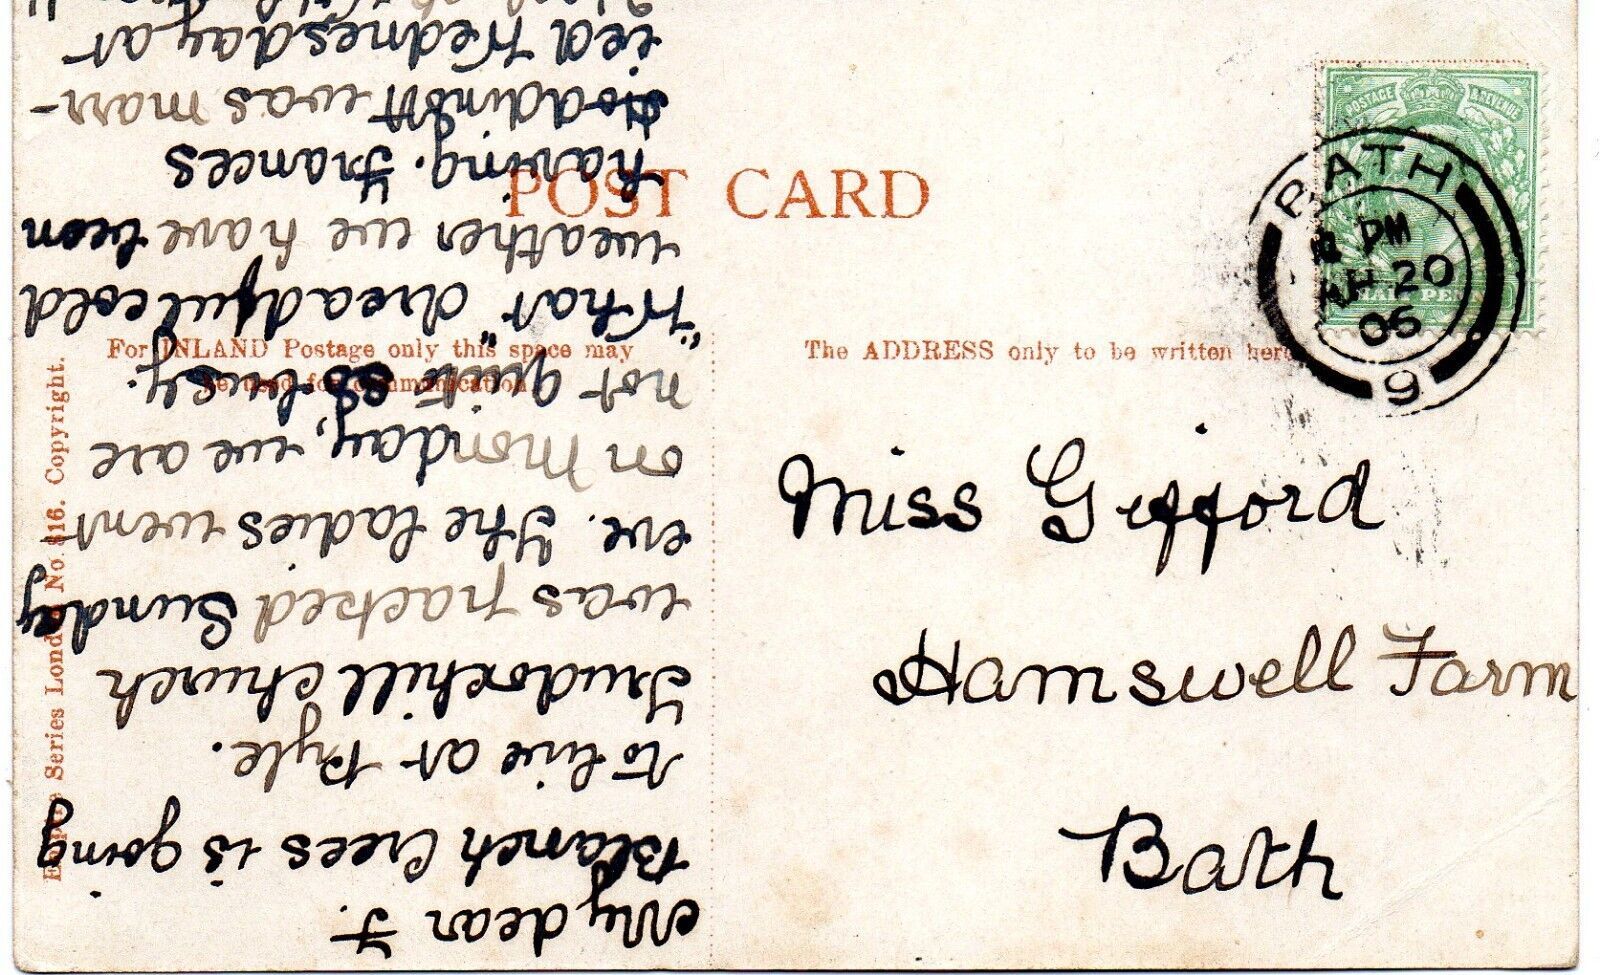 POST CARD
For INLAND Postage only this space may
be used for communication.
The ADDRESS only to be written here
Empire Series London No 116. Copyright.
POSTAGE & REVENUE
HALF PENNY
BATH
PM
MH 20
06
9
Miss Gifford
Hamswell Farm
Bath
My dear F.
Blanch Crees is going
to live at Ryle.
Tudorhill church
was packed Sunday
eve. The ladies went
on Monday, we are
not quite so busy.
"What" dreadful cold
weather we have been
having. Frances
was marr-
ied Wednesday at